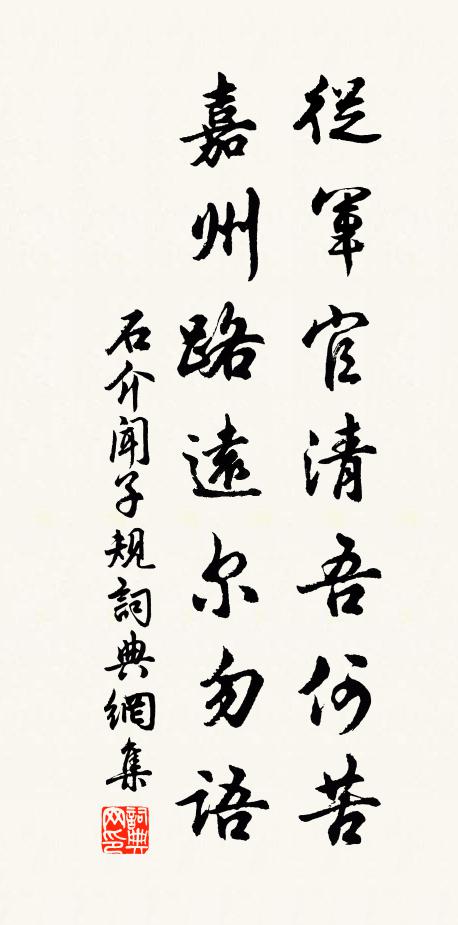 從軍官清吾何苦
嘉州路遠尔勿語
石介聞子規詞典網集
詞典网印